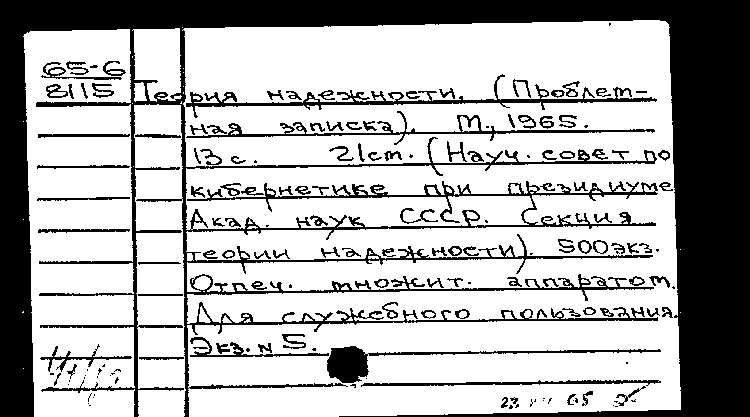 65-6
8115
Теория надежности. (Проблем-
ная записка). М., 1965.
13 с. 21см. (Науч. совет по
кибернетике при президиуме
Акад. наук СССР. Секция
теории надежности). 500экз.
Отпеч. множит. аппаратом.
Для служебного пользования.
Экз. N 5.
23 65